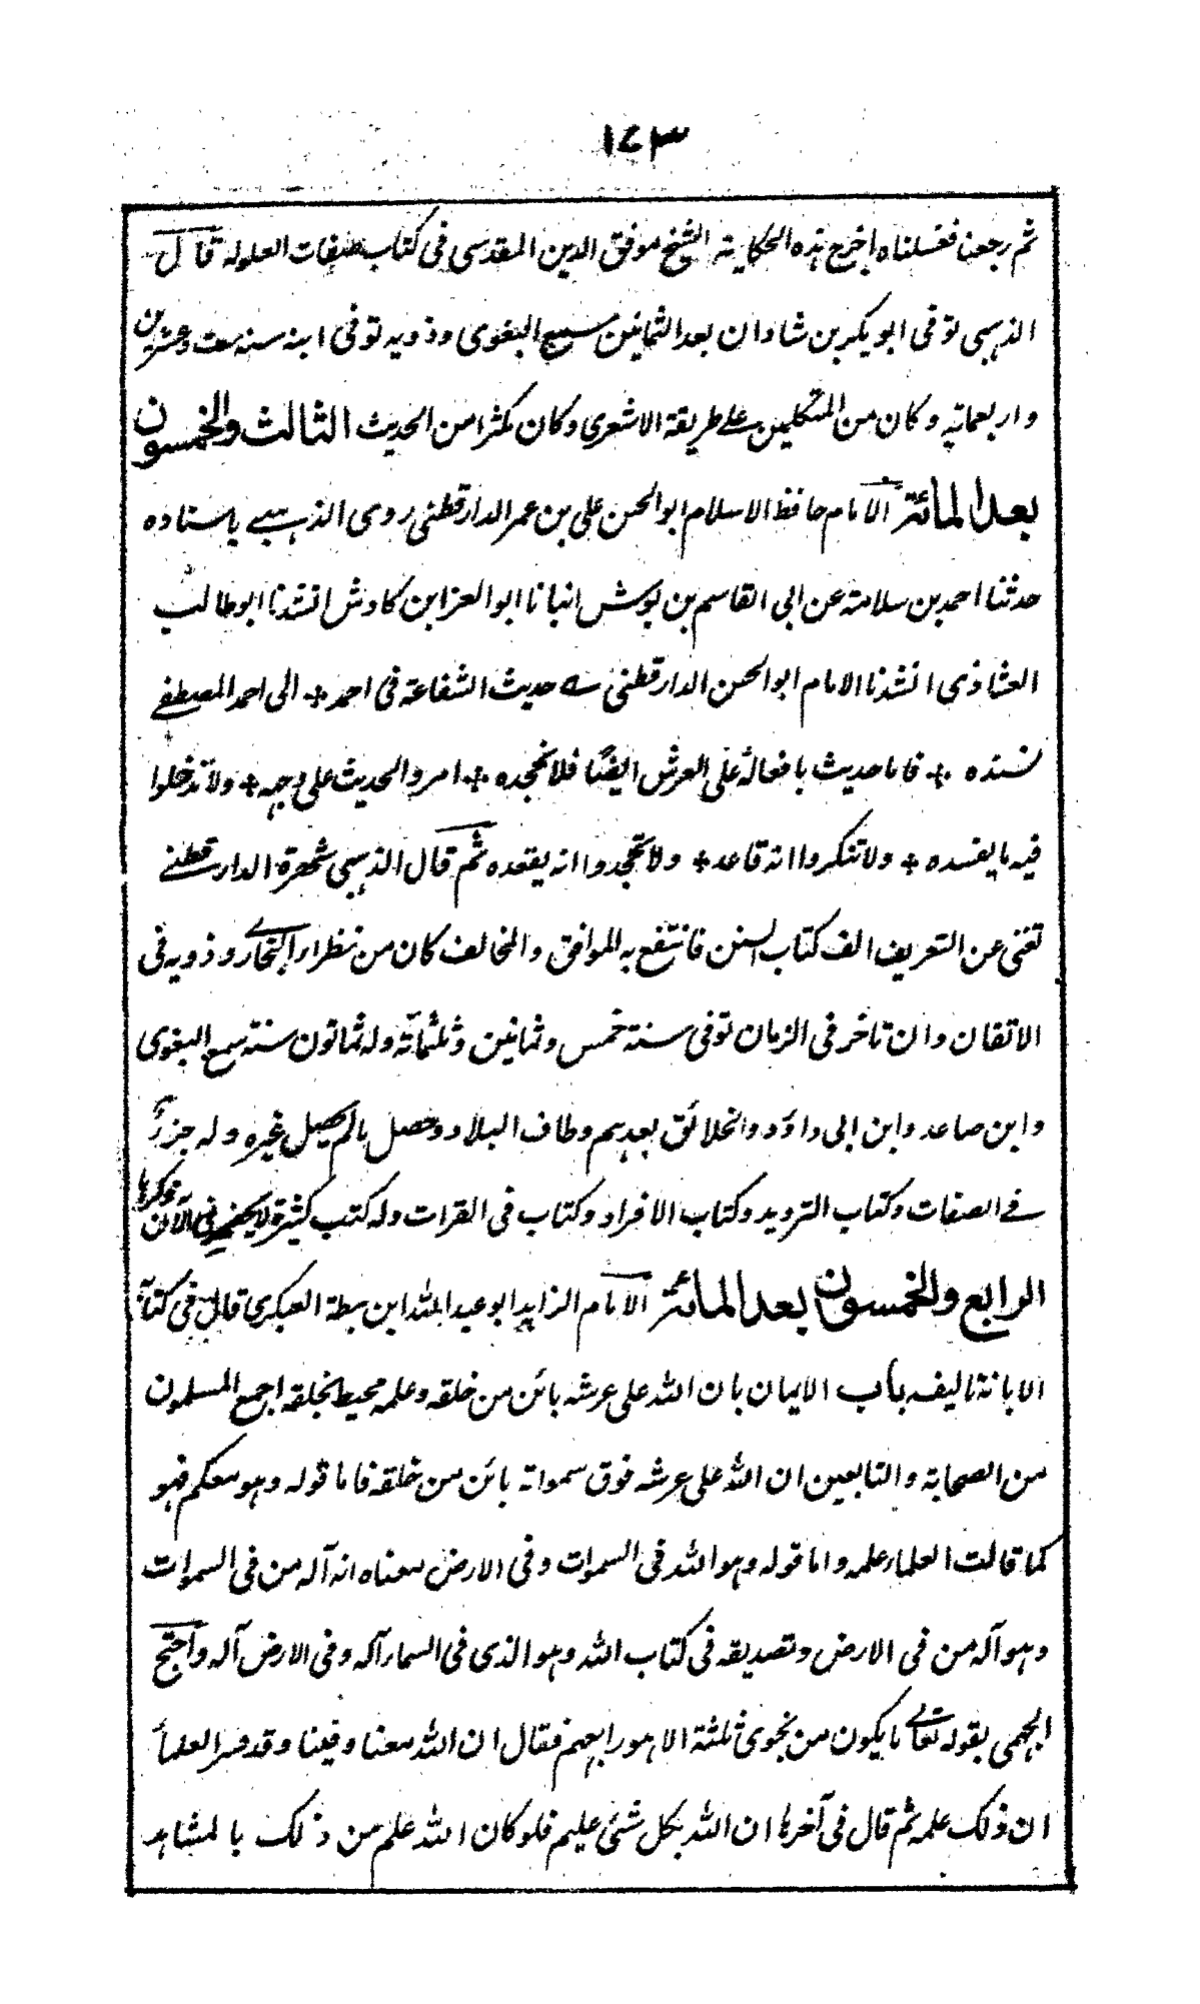 ١٤٣
ثم رجعنا فغسلناه اخرج هذه الحكاية الشيخ موفق الدين المقدسى فى كتاب صفات العلو له قال
الذهبى توفى ابو بكر بن شاذان بعد الثمانين سمع البغوى وذويه توفى ابنه سنه ست وعشرين
واربعماية وكان من المتكلمين على طريقة الاشعرى وكان مكثرا من الحديث الثالث والخمسون
بعد المائة الامام حافظ الاسلام ابو الحسن على بن عمر الدارقطنى روى الذهبى باسناده
حدثنا احمد بن سلامة عن ابى القاسم بن بوش انبانا ابو العز ابن كادش انشدنا ابو طالب
العشاذى انشدنا الامام ابو الحسن الدارقطنى سه حديث الشفاعة فى احمد + الى احمد المصطفى
نسنده + فاما حديث باقعاله على العرش ايضًا فلا نجحده + امروا الحديث على وجهه + ولا تدخلوا
فيه ما يفسده + ولا تنكروا انه قاعد + ولا تجحدوا انه يقعده ثم قال الذهبى شهرة الدارقطنى
تغنى عن التعريف الف كتاب السنن فانتفع به الموافق والمخالف كان من نظراء البخارى وذويه فى
الاتقان وان تاخر فى الزمان توفى سنة خمس وثمانين وثلثمائة وله ثمانون سنة سمع البغوى
وابن صاعد وابن ابى داؤد والخلائق بعدهم وطاف البلاد وحصل مالم يحصل غيره وله جزء
فى الصفات وكتاب الترويد وكتاب الافراد وكتاب فى القرات وله كتب كثيرة لا يحضرنى الان ذكرها
الرابع والخمسون بعد المائة الامام الزاهد ابو عبد الله ابن بطة العبكرى قال فى كتاب
الابانة تاليف باب الايمان بان الله على عرشه بائن من خلقه وعلمه محيط بخلقه اجمع المسلمون
من الصحابة والتابعين ان الله على عرشه فوق سمواته بائن من خلقه فاما قوله وهو معكم فهو
كما قالت العلماء علمه واما قوله وهو الله فى السموات وفى الارض معناه انه آله من فى السموات
وهو آله من فى الارض وتصديقه فى كتاب الله وهو الذى فى السماء آله وفى الارض آله واحتج
الجهمى بقوله تعالى ما يكون من نجوى ثلثة الا هو رابعهم فقال ان الله معنا وفينا وقد فسر العلماء
ان ذلك علمه ثم قال فى آخرها ان الله بكل شئ عليم فلو كان الله علم من ذلك بالمشاهد